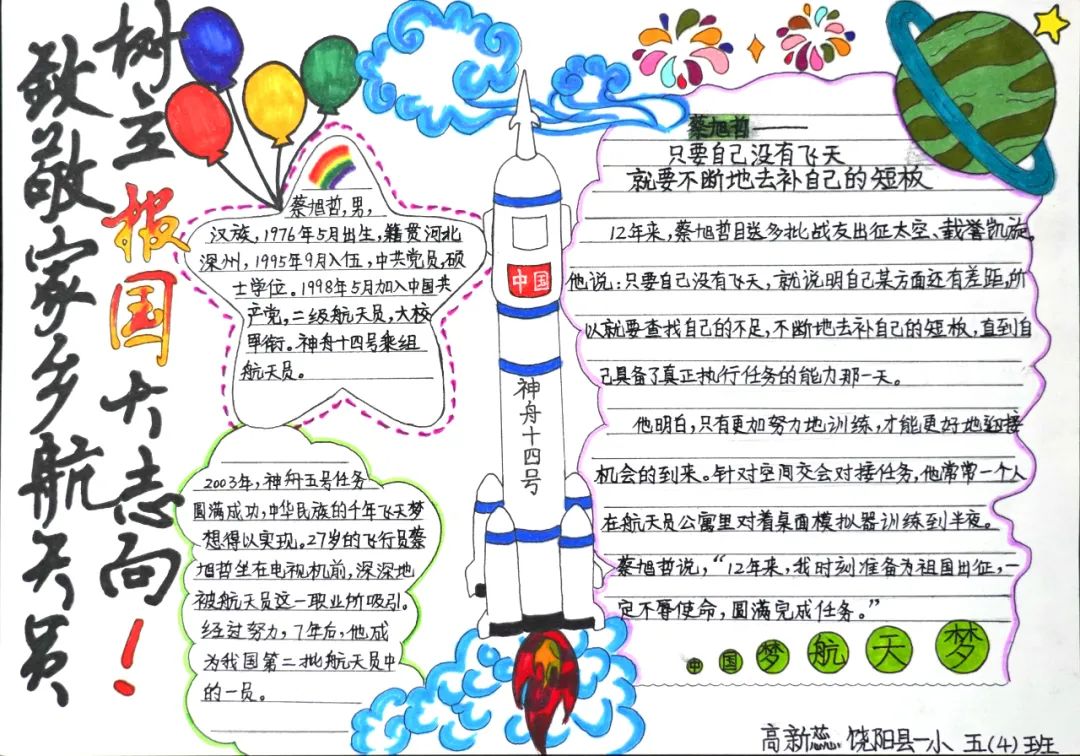 树立报国大志向！
致敬家乡航天员
蔡旭哲,男,
汉族,1976年5月出生,籍贯河北
深州,1995年9月入伍,中共党员,硕
士学位。1998年5月加入中国共
产党,二级航天员,大校
军衔。神舟十四号乘组
航天员。
2003年,神舟五号任务
圆满成功,中华民族的千年飞天梦
想得以实现。27岁的飞行员蔡
旭哲坐在电视机前,深深地
被航天员这一职业所吸引。
经过努力,7年后,他成
为我国第二批航天员中
的一员。
中国
神舟十四号
蔡旭哲——
只要自己没有飞天
就要不断地去补自己的短板
12年来,蔡旭哲目送多批战友出征太空、载誉凯旋。
他说:只要自己没有飞天,就说明自己某方面还有差距,所
以就要查找自己的不足,不断地去补自己的短板,直到自
己具备了真正执行任务的能力那一天。
他明白,只有更加努力地训练,才能更好地迎接
机会的到来。针对空间交会对接任务,他常常一个人
在航天员公寓里对着桌面模拟器训练到半夜。
蔡旭哲说,“12年来,我时刻准备为祖国出征,一
定不辱使命,圆满完成任务。”
中国梦航天梦
高新蕊 饶阳县一小 五(4)班